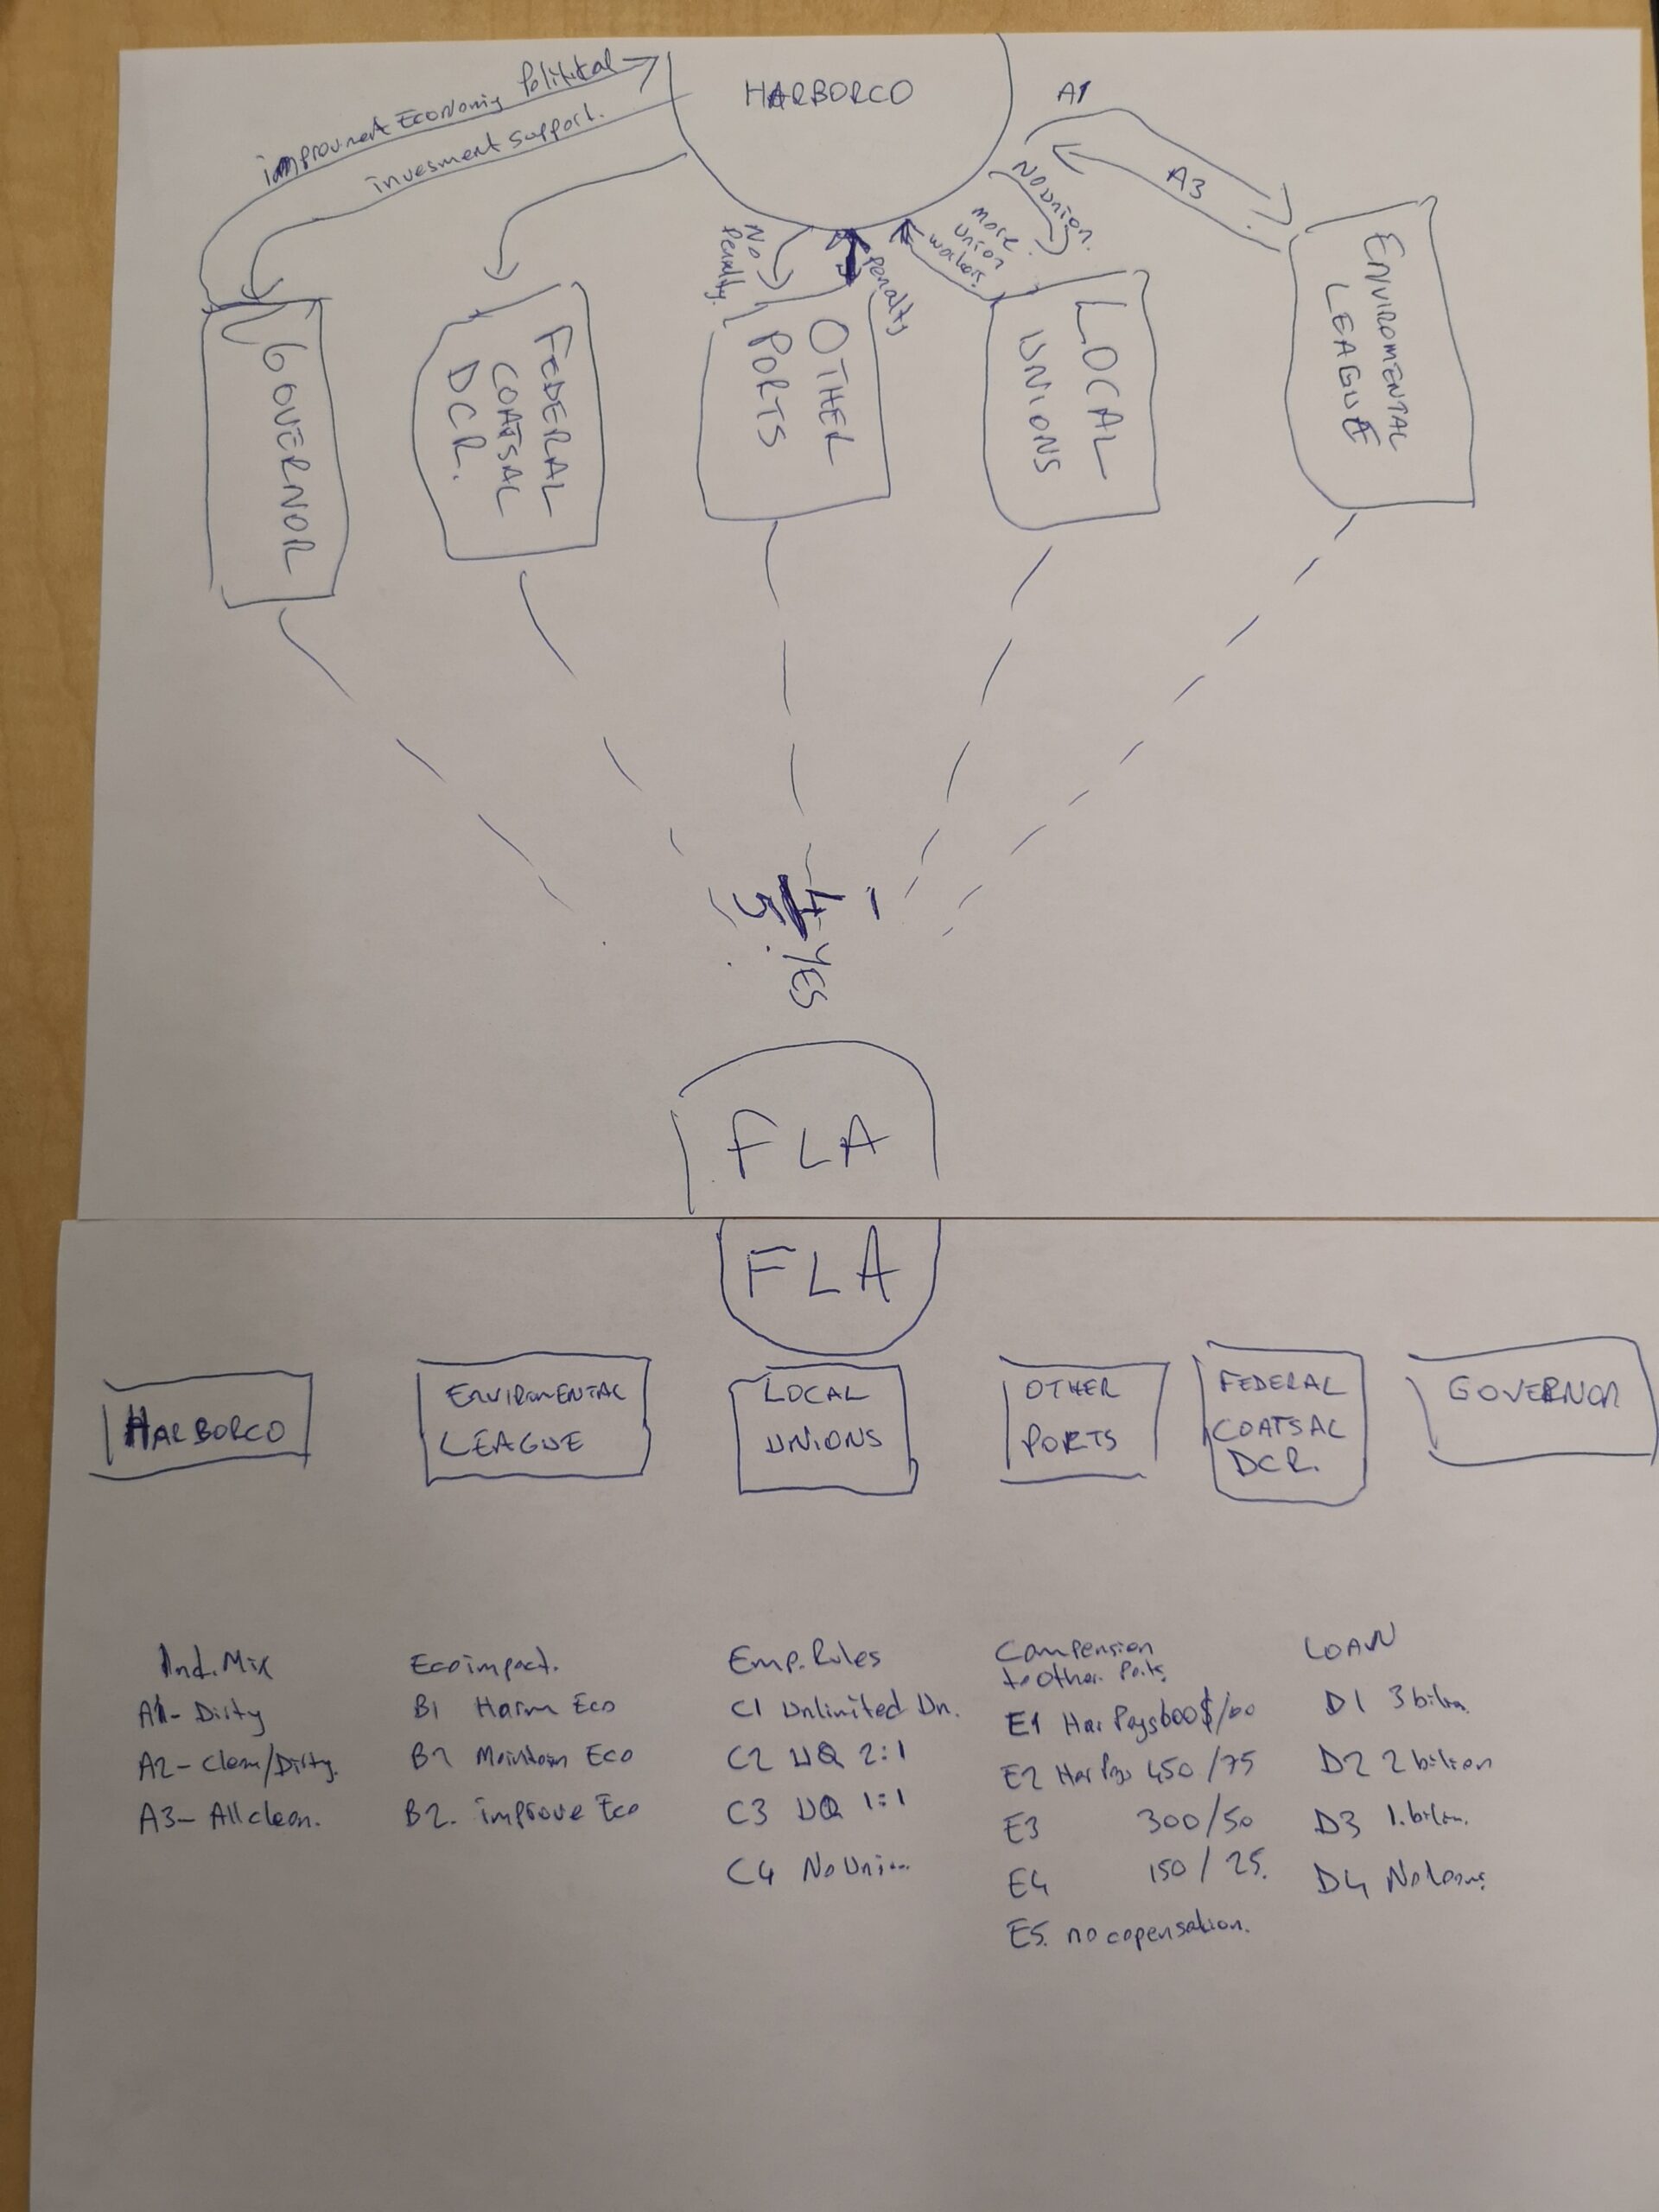 HARBORCO
improvment Economiy Political
invesment support.
A1
A3
No union.
more
union
workers.
No
Penalty.
Penalty
GOVERNOR
FEDERAL
COATSAL
DCR.
OTHER
PORTS
LOCAL
UNIONS
ENVIROMENTAL
LEAGUE
YES
FLA
FLA
HARBORCO
ENVIROMENTAL
LEAGUE
LOCAL
UNIONS
OTHER
PORTS
FEDERAL
COATSAL
DCR.
GOVERNOR
Ind. Mix
A1- Dirty
A2- Clean/Dirty.
A3- All clean.
Eco impact.
B1 Harm Eco
B2 Maintain Eco
B2. improve Eco
Emp. Rules
C1 Unlimited Un.
C2 UQ 2:1
C3 UQ 1:1
C4 No Union
Compension
to other Ports
E1 Har Pays 600$/
E2 Har Pays 450/75
E3 300/50
E4 150/25.
E5. no copensation.
LOAN
D1 3 bilion
D2 2 bilion
D3 1. bilion.
D4 No loans